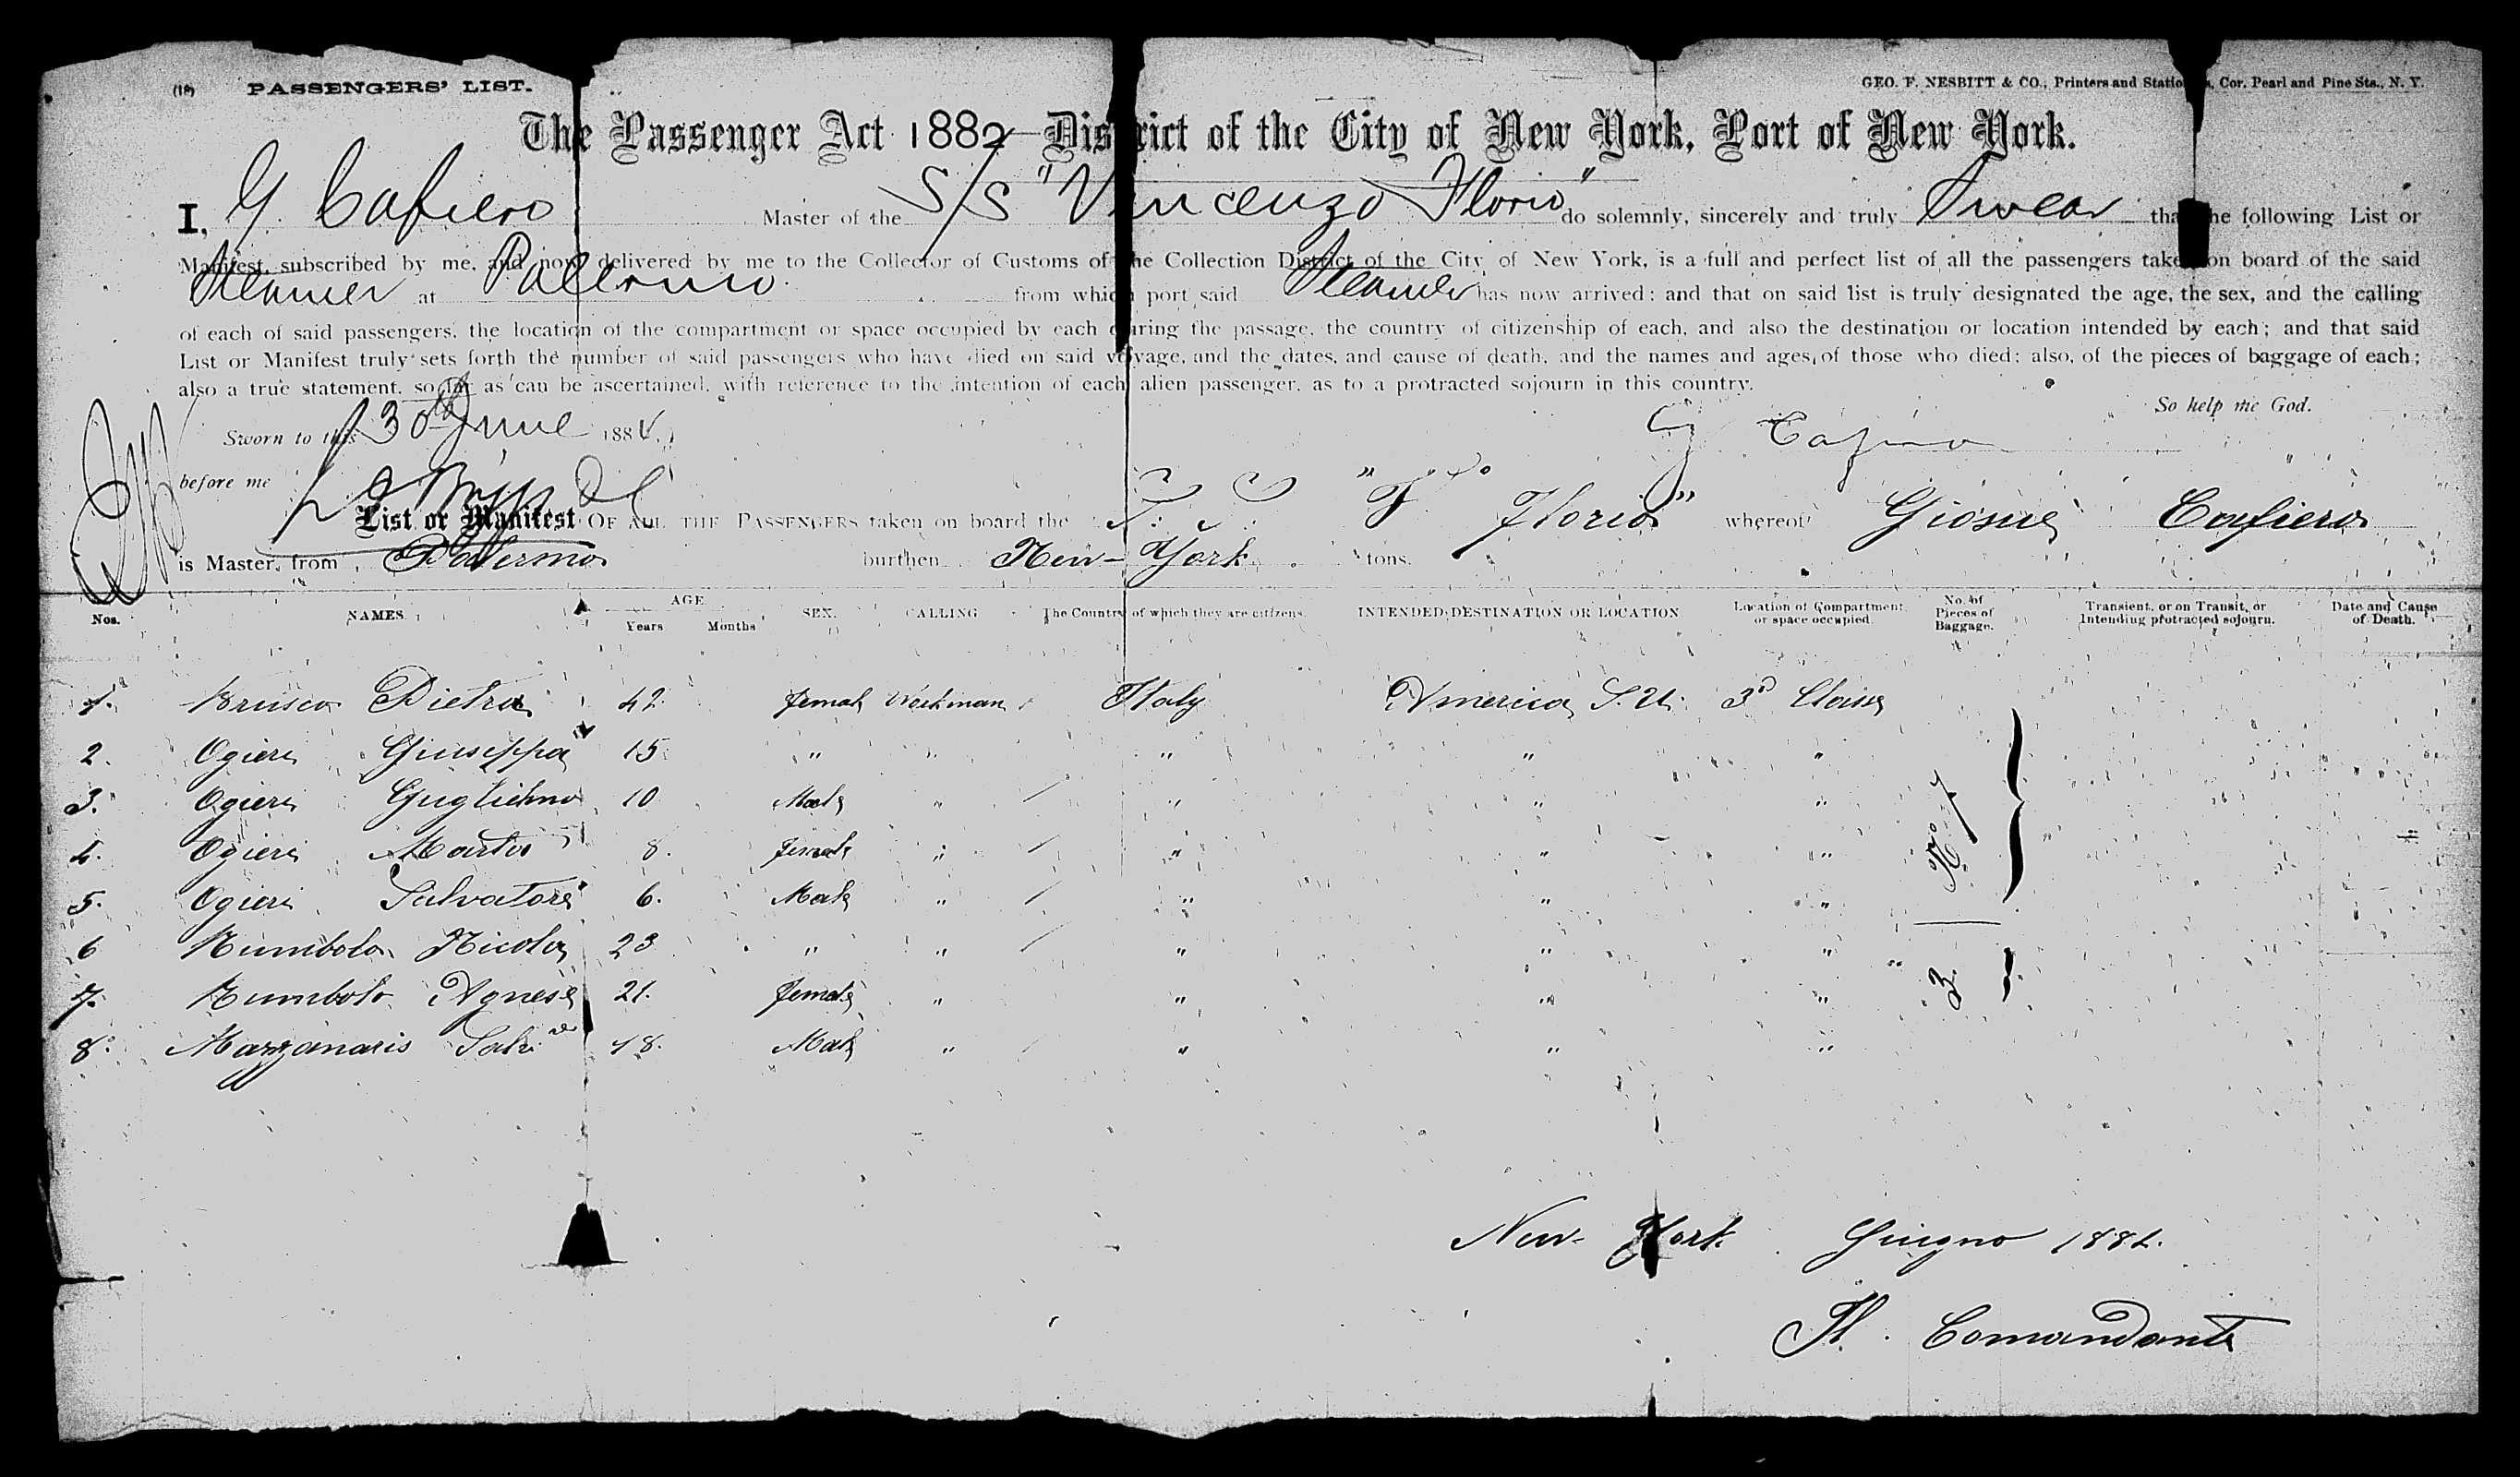 (18) PASSENGERS' LIST. GEO. F. NESBITT & CO., Printers and Statio s, Cor. Pearl and Pine Sts., N. Y.
The Passenger Act 1882 District of the City of New York, Port of New York.
I, G. Cafiero Master of the S/S "Vincenzo Florio" do solemnly, sincerely and truly Swear that the following List or
Manifest, subscribed by me, and now delivered by me to the Collector of Customs of the Collection District of the City of New York, is a full and perfect list of all the passengers taken on board of the said
Steamer at Palermo from which port said Steamer has now arrived; and that on said list is truly designated the age, the sex, and the calling
of each of said passengers, the location of the compartment or space occupied by each during the passage, the country of citizenship of each, and also the destination or location intended by each; and that said
List or Manifest truly sets forth the number of said passengers who have died on said voyage, and the dates, and cause of death, and the names and ages of those who died; also, of the pieces of baggage of each;
also a true statement, so far as can be ascertained, with reference to the intention of each alien passenger, as to a protracted sojourn in this country.
So help me God.
Sworn to this 30th June 1884. G Cafiero
before me
List or Manifest OF ALL THE PASSENGERS taken on board the S. S. "V. Florio" whereof Giosuè Cafiero
is Master, from Palermo burthen New-York tons.
Nos. NAMES. AGE Years Months SEX. CALLING The Country of which they are citizens. INTENDED DESTINATION OR LOCATION Location of Compartment or space occupied. No. of Pieces of Baggage. Transient, or on Transit, or Intending protracted sojourn. Date and Cause of Death.
1. Brusco Pietra 42. Female Workman Italy America S. U. 3d Class
2. Ogieri Giuseppa 15. " " " " "
3. Ogieri Guglielmo 10 Male " " " "
4. Ogieri 8. Female " " " "
5. Ogieri Salvatore 6. Male " " " "
No. 7
6 Rumbolo Nicola 23 " " " " "
7. Rumbolo Agnese 21. Female " " " "
3.
8. Mazzanaris 18. Male " " " "
New-York Giugno 1884.
Il Comandante